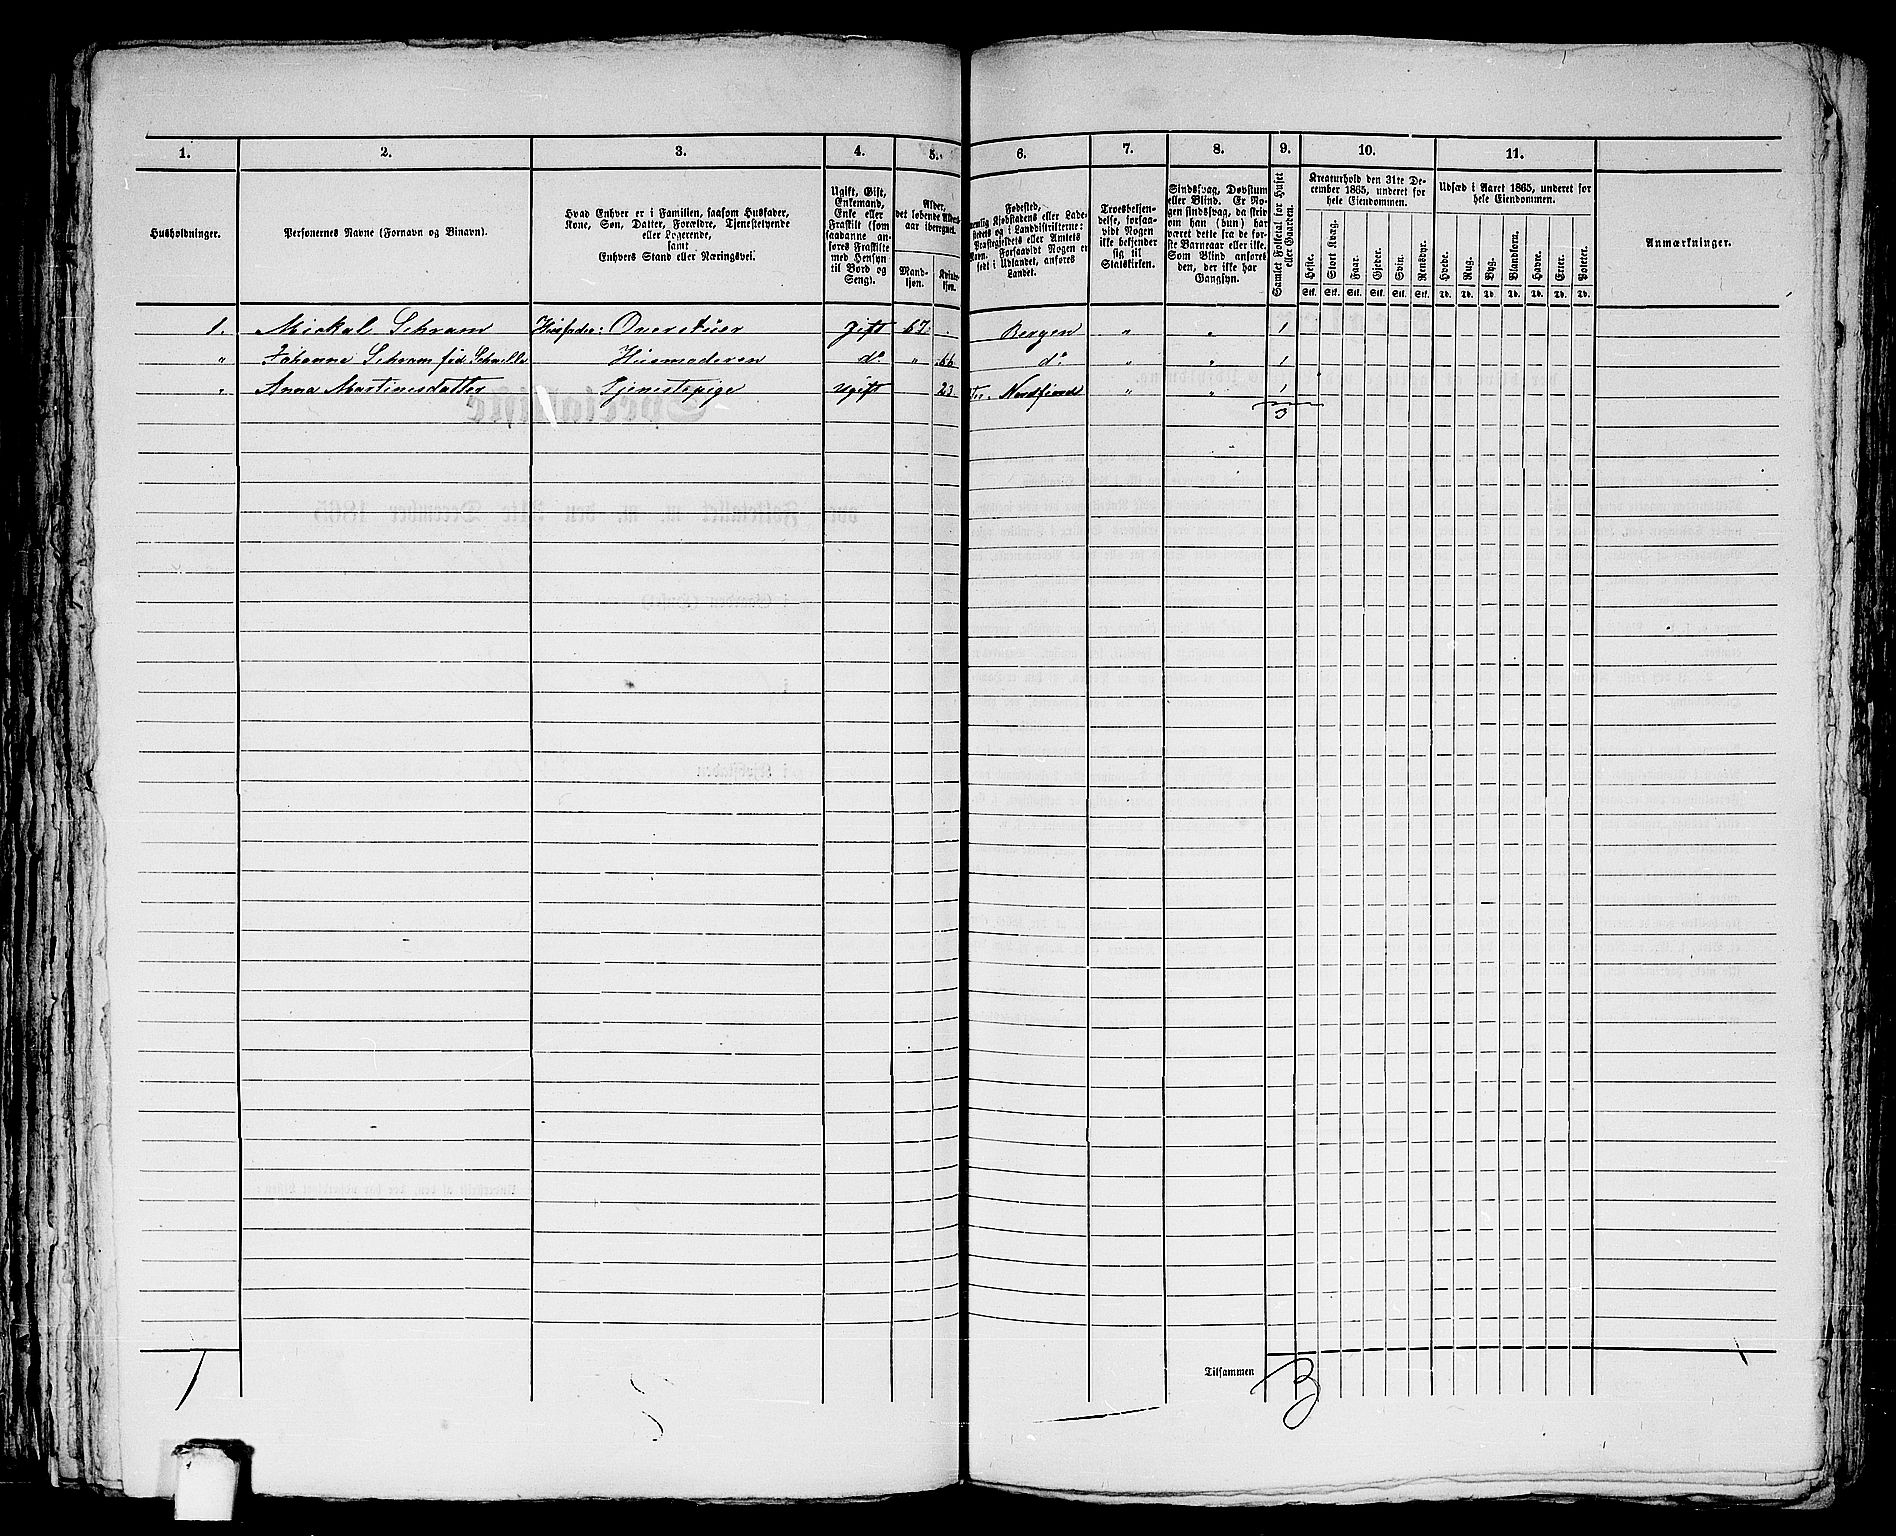 1. 2. 3. 4. 5. 6. 7. 8. 9. 10. 11.
Husholdninger.
Personernes Navne (Fornavn og Binavn).
Hvad Enhver er i Familien, saasom Husfader,
Kone, Søn, Datter, Forældre, Tjenestetyende
eller Logerende,
samt
Enhvers Stand eller Næringsvei.
Ugift, Gift,
Enkemand,
Enke eller
Fraskilt (som
saadanne an-
føres Fraskilte
med Hensyn
til Bord og
Seng).
Alder,
det løbende Alders-
aar iberegnet.
Mand-
kjøn.
Kvinde-
kjøn.
Fødested,
nemlig Kjøbstadens eller Lade-
stedets og i Landdistrikterne:
Præstegjeldets eller Amtets
Navn. Forsaavidt Nogen er
født i Udlandet, anføres
Landet.
Troesbekjen-
delse, forsaa-
vidt Nogen
ikke bekjender
sig til
Statskirken.
Sindssvag, Døvstum
eller Blind. Er No-
gen sindssvag, da skriv
om han (hun) har
været dette fra de før-
ste Barneaar eller ikke.
Som Blind anføres
den, der ikke har
Gangsyn.
Samlet Folketal for Huset
eller Gaarden.
Kreaturhold den 31te De-
cember 1865, underet for
hele Eiendommen.
Heste. Stort Kvæg. Faar. Gjeder. Svin. Rensdyr.
Stk. Stk. Stk. Stk. Stk. Stk.
Udsæd i Aaret 1865, underet for
hele Eiendommen.
Hvede. Rug. Byg. Blandkorn. Havre. Erter. Poteter.
Td. Td. Td. Td. Td. Td. Td.
Anmærkninger.
1. Mickal Schram Huusfader: Overstüer gift 67. Bergen " " 1
" Johanne Schram fød Schnelle Huusmoderen do. " 66 do " " 1
" Anna Martinesdatter Tjenestepige Ugift 23. Nordfiord " " 1
3
Tilsammen 3
1